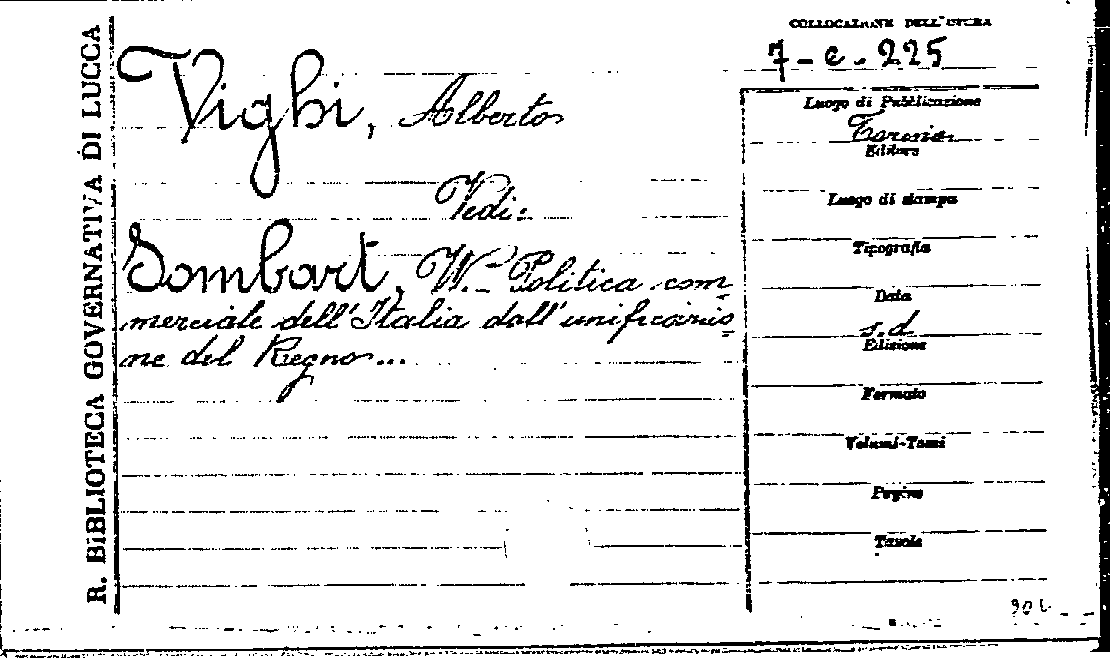 R. BiBLIOTECA GOVERNATIVA DI LUCCA
COLLOCAZIONE DELL'OPERA
7-c.225
Vighi, Alberto
Vedi:
Sombart, W.- Politica com-
merciale dell'Italia dall'unificazio=
ne del Regno...
Luogo di Pubblicazione
Torino
Editore
Luogo di stampa
Tipografia
Data
s.d
Edizione
Formato
Volumi-Tomi
Pagine
Tavole